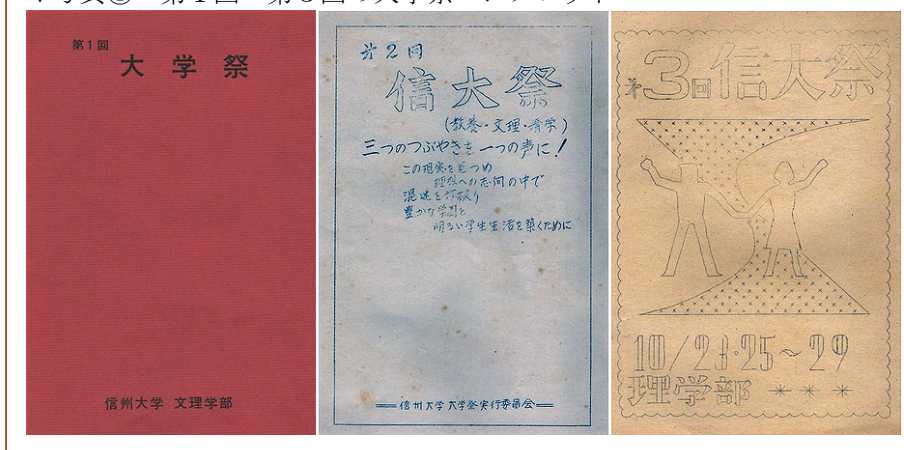 第1回
大学祭
信州大学 文理学部
第2回
信大祭
(教養・文理・医学)
三つのつぶやきを一つの声に!
この現実を見つめ
理想への志向の中で
混迷を
豊かな学問と
明るい学生生活を築くために
信州大学大学祭実行委員会
第3回信大祭
10/23・25〜29
理学部 ***